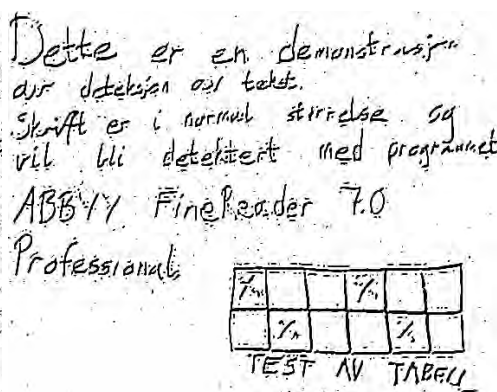 Dette er en demonstrasjon
av deteksjon av tekst.
Skrift er i normal størrelse og
vil bli detektert med programmet
ABBYY FineReader 7.0
Professional.
% %
% %
TEST AV TABELL